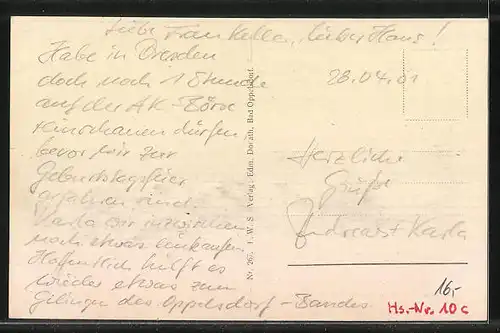 Liebe Frau Keller, lieber Hans!
Habe in Dresden
doch noch 1 Stunde
auf der AK-Börse
reinschauen dürfen,
bevor wir zur
Geburtstagsfeier
gefahren sind.
Karla war inzwischen
noch etwas einkaufen.
Hoffentlich hilft es
wieder etwas zum
Gelingen des Oppelsdorf-Bandes.
Nr. 267. I. W. S Verlag: Edm. Dorath, Bad Oppelsdorf.
28.04.01
Herzliche
Grüße
Andreas + Karla
16,-
Hs.-Nr. 10c